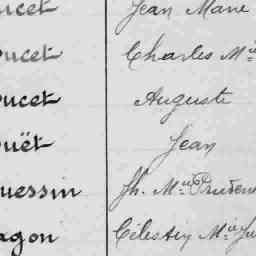 ucet Jean Marie
oucet Charles M
oucet Auguste
ouët Jean
uessin Jh. Mie Pruden
agon Célestin Mie Ju